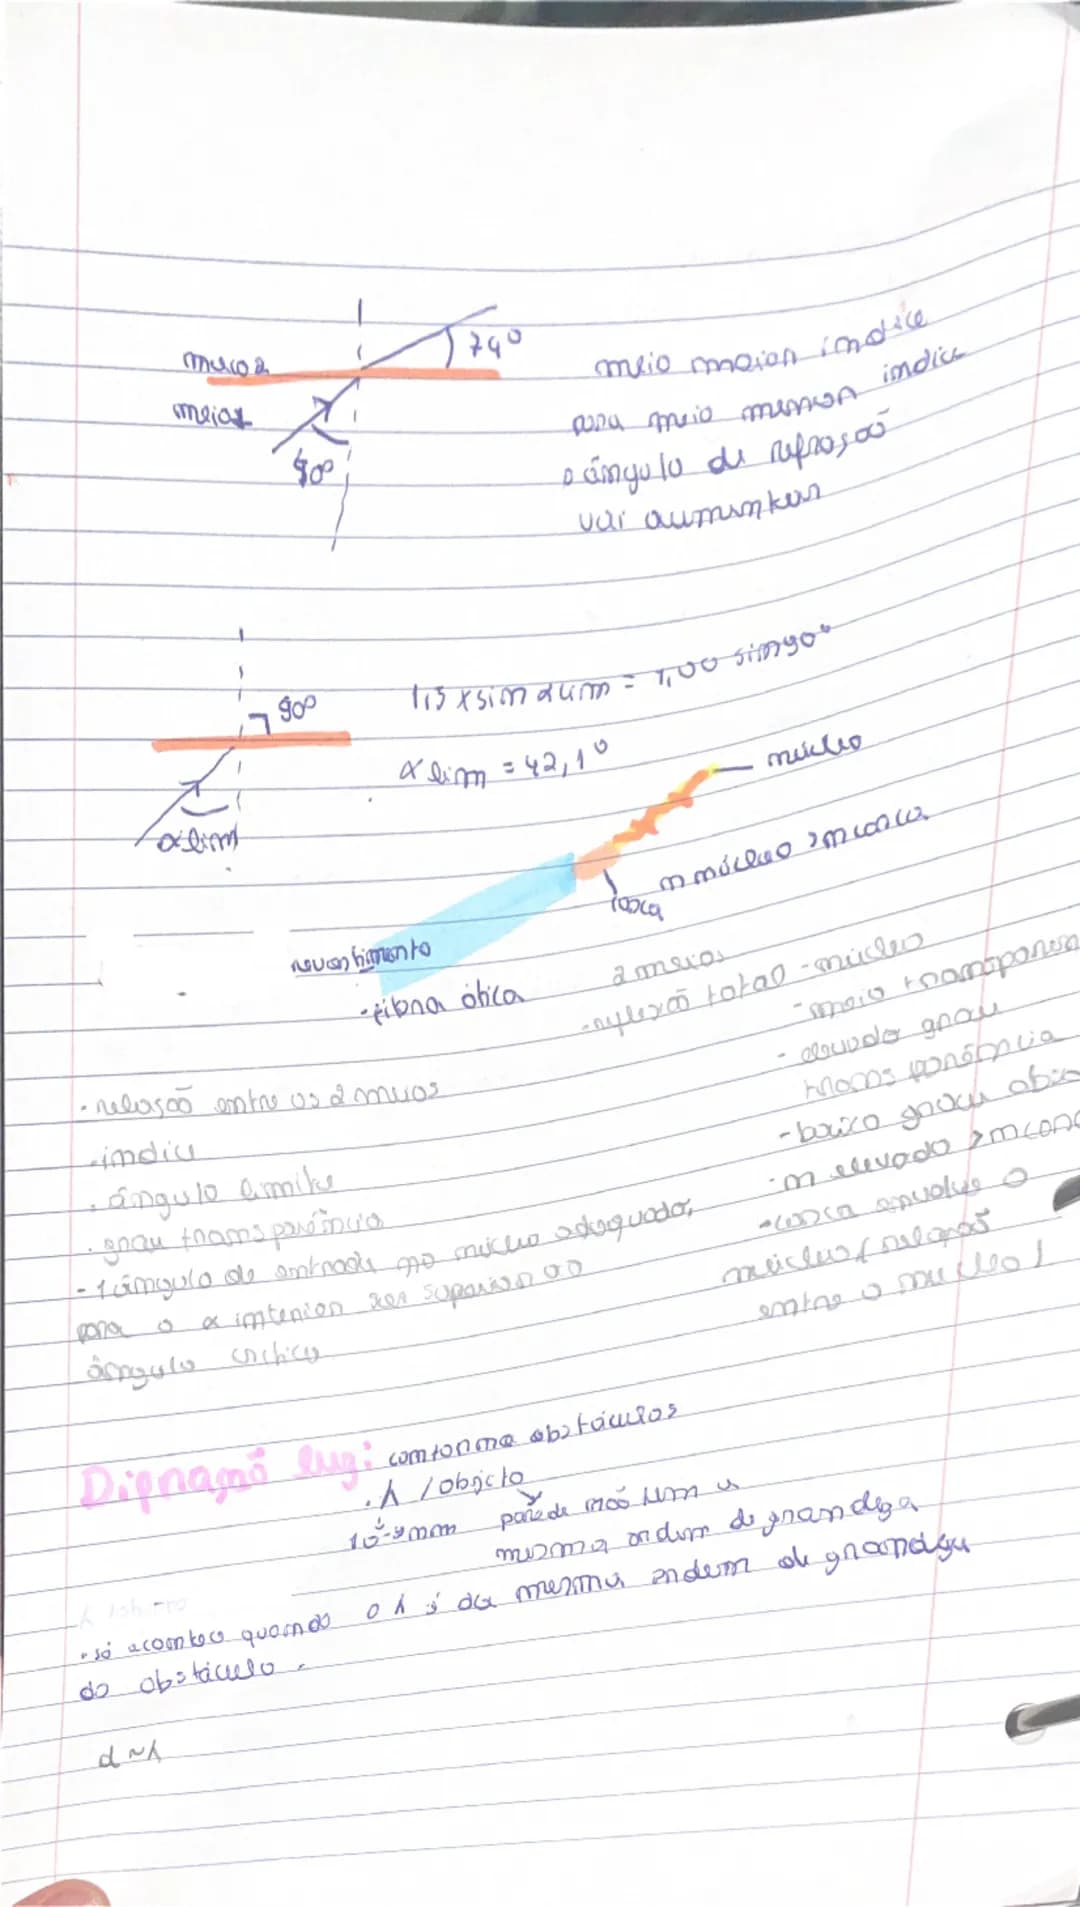 meio 2
74º
meio 1
40º
meio maior indice
para meio menor indice
o ângulo de refração
vai aumentar
90º
1,5 x sin αlim = 1,00 sin 90º
α lim = 42,1º
αlim
núcleo
n núcleo > n casca
casca
revestimento
-fibra ótica
2 meios
-reflexão total -núcleo
-meio transparen
- elevado grau
transparência
-baixo grau abs
-n elevado > n
-casca envolve o
núcleo (relação
entre o núcleo)
·relação entre os 2 meios
-indice
·ângulo limite
·grau transparência
-1 ângulo de entrada no núcleo adequado,
para o α interior ser superior ao
ângulo critico
Difração luz: contorna obstáculos
·λ / objeto
parede não tem a
mesma ordem de grandeza
·só acontece quando o λ é da mesma ordem de grandeza
do obstáculo
d ~ λ